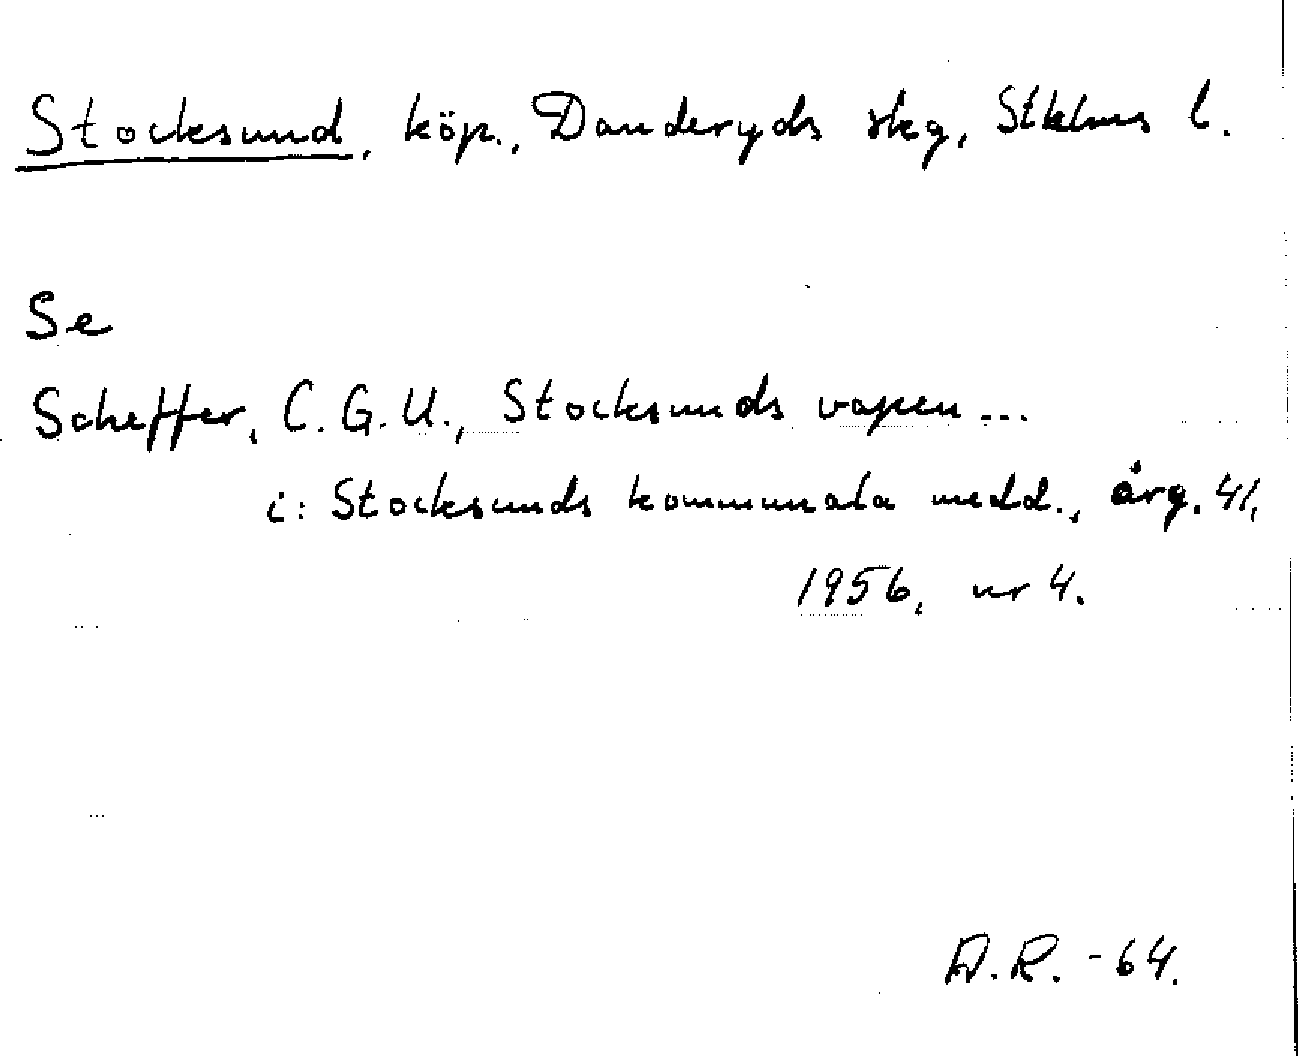 Stocksund, köp., Danderyds skg, Sthlms l.
Se
Scheffer, C.G.U., Stocksunds vapen...
i: Stocksunds kommunala medd., årg. 41,
1956, nr 4.
A.R. -64.